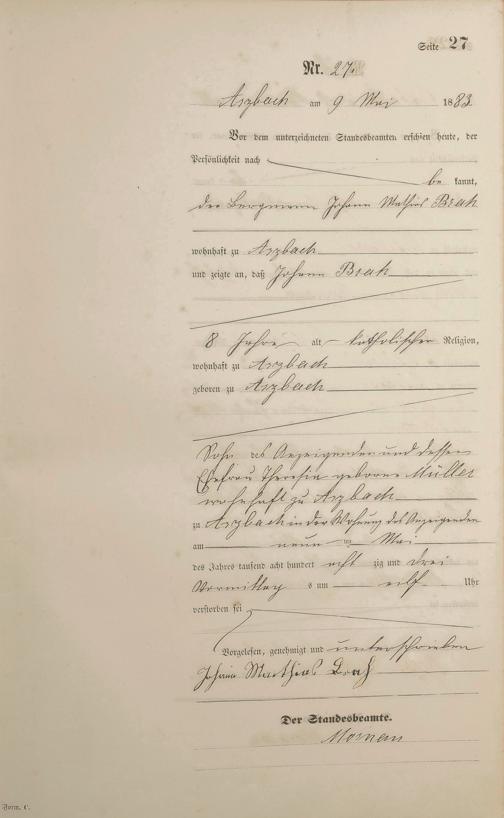 Seite 27
Nr. 27.
Arzbach am 9 Mai 1883
Vor dem unterzeichneten Standesbeamten erschien heute, der
Persönlichkeit nach
be kannt,
der Bergmann Johann Mathias Brah
wohnhaft zu Arzbach
und zeigte an, daß Johann Brah
8 Jahre alt katholischer Religion,
wohnhaft zu Arzbach
geboren zu Arzbach
Sohn des Anzeigenden und dessen
Ehefrau Theresia geborne Müller
wohnhaft zu Arzbach
zu Arzbach in der Wohnung des Anzeigenden
am neun ten Mai
des Jahres tausend acht hundert acht zig und drei
Vormittag s um eilf Uhr
verstorben sei
Vorgelesen, genehmigt und unterschrieben
Johann Matthias Brah
Der Standesbeamte.
Form. C.